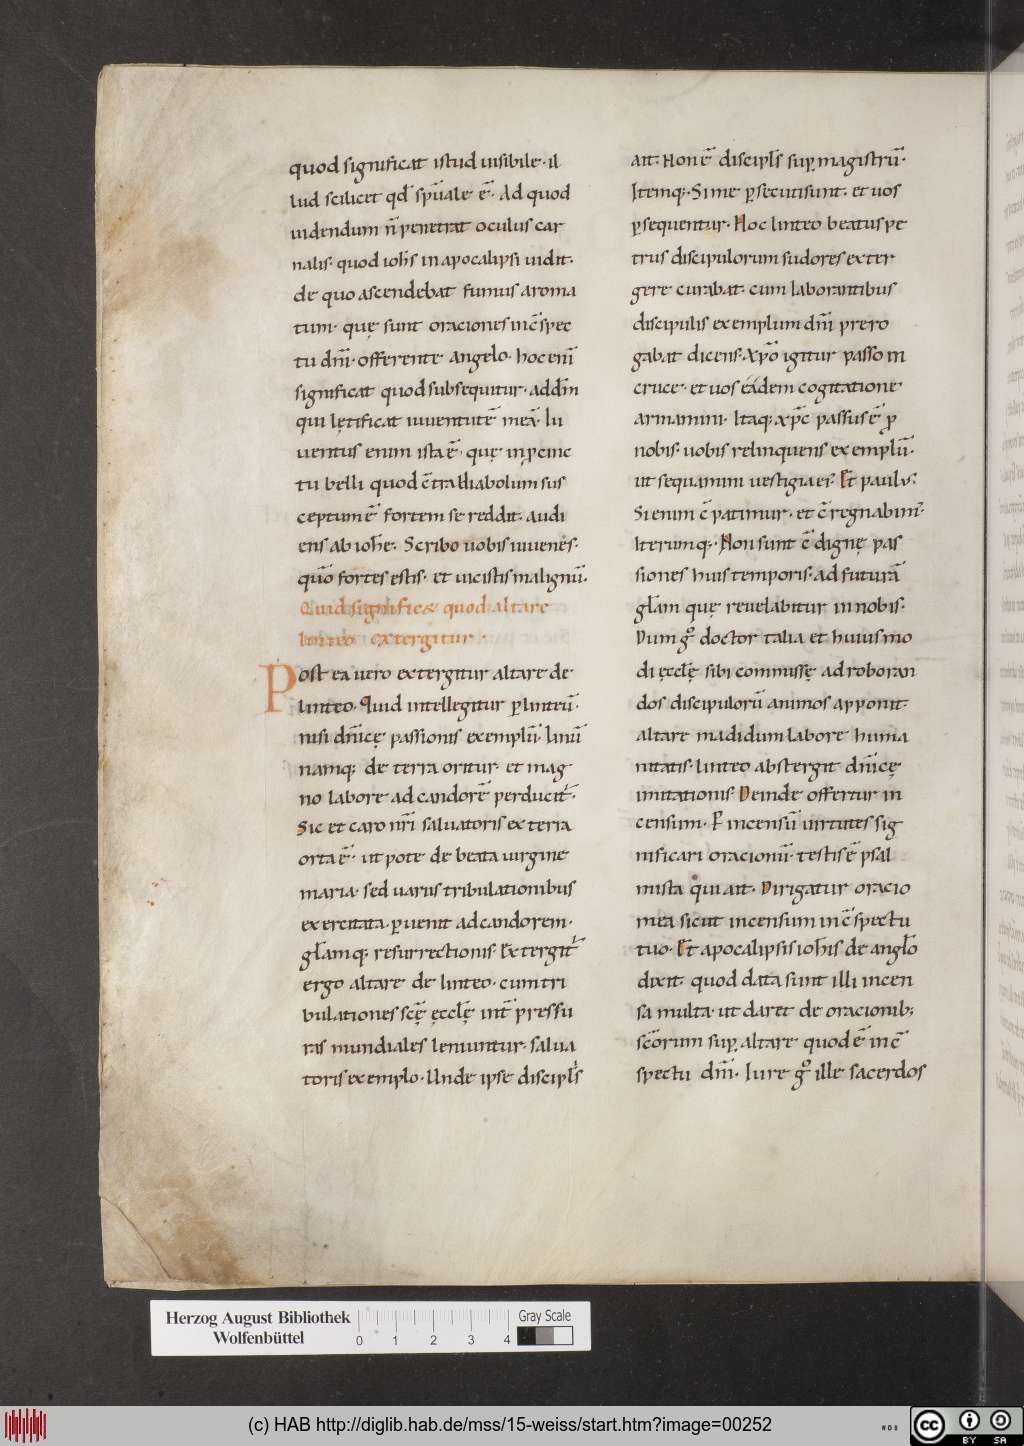 quod significat istud uisibile· il
lud scilicet qđ spūale ē· Ad quod
uidendum n̄ penetrat oculus car
nalis· quod ioħs in apocalipsi uidit·
de quo ascendebat fumus aroma
tum· quę sunt oraciones in c̄spec
tu dn̄i· offerente angelo· hoc eni̅
significat quod subsequitur· ad dm̄
qui lętificat iuuentutē meā· Iu
uentus enim ista ē· quę in p̱cinc
tu belli quod c̄tra diabolum sus
ceptum ē fortem se reddit· audi
ens ab ioħe· Scribo uobis iuuenes·
quō fortes estis· et uicistis malignū·
Quid significæ quod altare
linteo extergitur·
Post ea uero extergitur altare de
linteo· Quid intellegitur ꝑ linteū·
nisi dn̄icę passionis exemplū· linū
namq; de terra oritur· et mag
no labore ad candorē perducit᷑·
Sic et caro nr̄i saluatoris ex terra
orta ē· ut pote de beata uirgine
maria· sed uariis tribulationibus
exercitata· ꝑuenit ad candorem·
gl̄amq; resurrectionis· Extergit᷑
ergo altare de linteo· cum tri
bulationes scę̄ ęcclę̄ int̄ pressu
ras mundiales leniuntur· salua
toris exemplo· Unde ipse discipl̄s
ait· Non ē discipl̄s suꝑ magistrū·
Itemq;· Si me ꝑsecuti sunt· et uos
ꝑsequentur· Hoc linteo beatus pe
trus discipulorum sudores exter
gere curabat· cum laborantibus
discipulis exemplum dn̄i prero
gabat dicens· xp̄o igitur passo in
cruce· et uos eadem cogitatione
armamini· Itaq; xp̄c passus ē ꝓ
nobis· uobis relinquens exemplū·
ut sequamini uestigia ei᷒· Et paulus·
Si enim c̄patimur· et c̄regnabim᷒·
Iterumq;· Non sunt c̄dignę pas
siones huis temporis· ad futurā
gl̄am quę reuelabitur in nobis·
Dum gͦ doctor talia et huiusmo
di ęcclę̄ sibi commissę ad roboran
dos discipulorū animos apponit·
altare madidum labore huma
nitatis· linteo abstergit dn̄icę
imitationis· Deinde offertur in
censum· P incensū uirtutes sig
nificari oracionū· testis ē psal
mista qui ait· Dirigatur oracio
mea sicut incensum in c̄spectu
tuo· Et apocalipsis ioħis de angl̄o
dixit· quod data sunt illi incen
sa multa· ut daret de oracionib;
sc̄orum suꝑ altare· quod ē in c̄
spectu dn̄i· Iure gͦ ille sacerdos
Herzog August Bibliothek
Wolfenbüttel
0 1 2 3 4
Gray Scale
(c) HAB http://diglib.hab.de/mss/15-weiss/start.htm?image=00252
WDB
cc BY SA